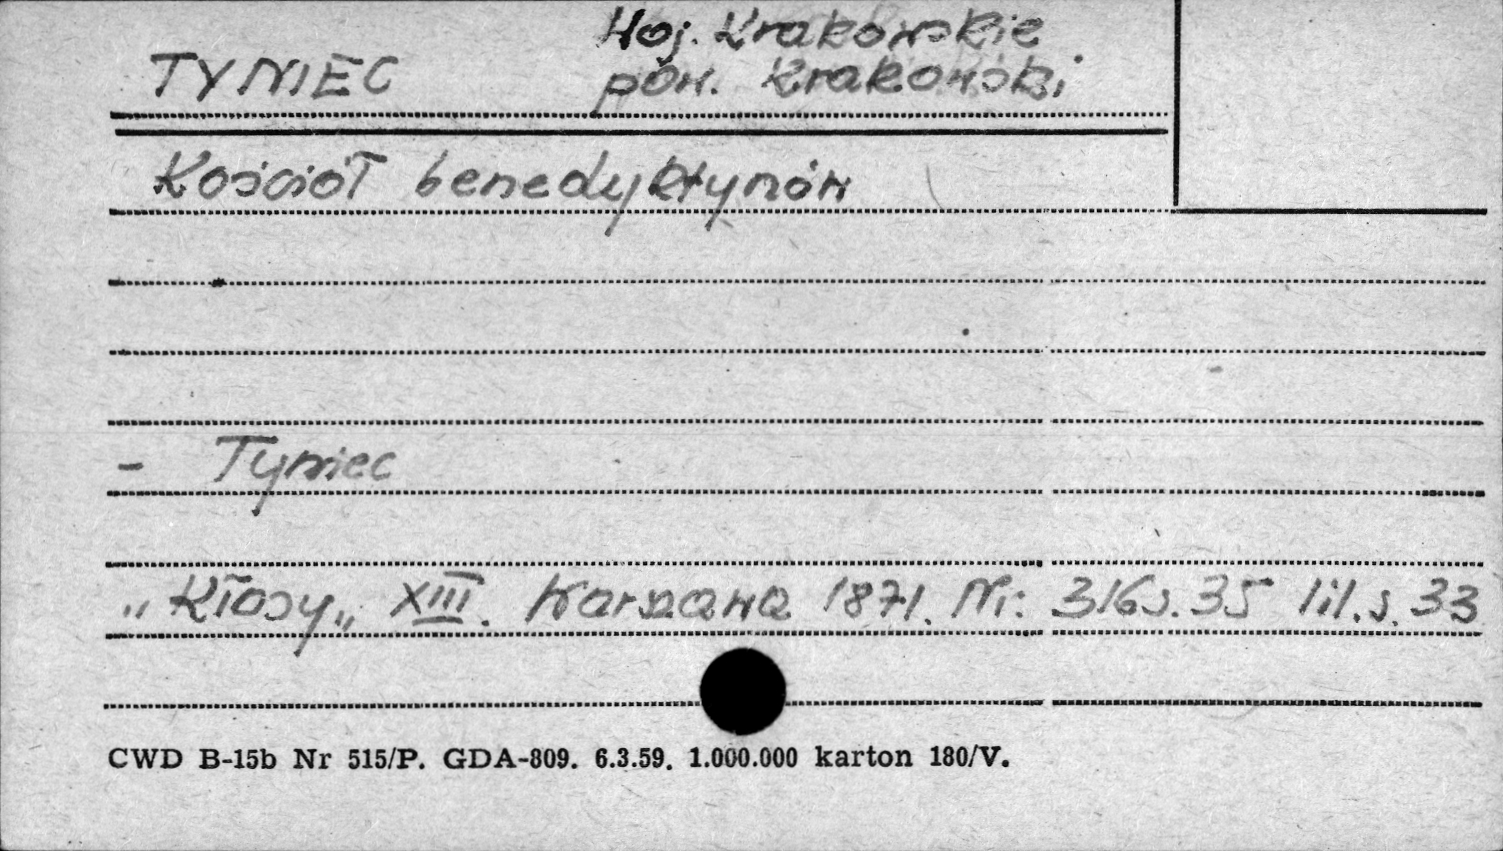 Woj. Krakowskie
TYNIEC pow. Krakowski
Kościół benedyktynów
- Tyniec
„Kłosy„ XIII. Warszawa 1871. Nr: 316 s. 35 lil. s. 33
CWD B-15b Nr 515/P. GDA-809. 6.3.59. 1.000.000 karton 180/V.